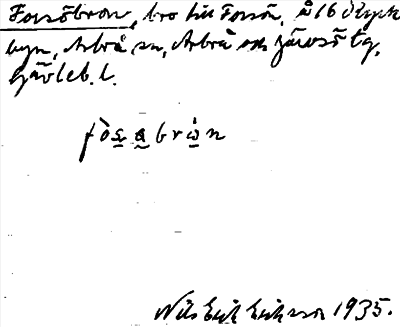 Forsöbron, bro till Forsön, å 16
byn, Arbrå sn, Arbrå och Järvsö tg,
Gävleb. l.
fòs̱a̰brω̱̇n
Nils Erik Eriksson 1935.